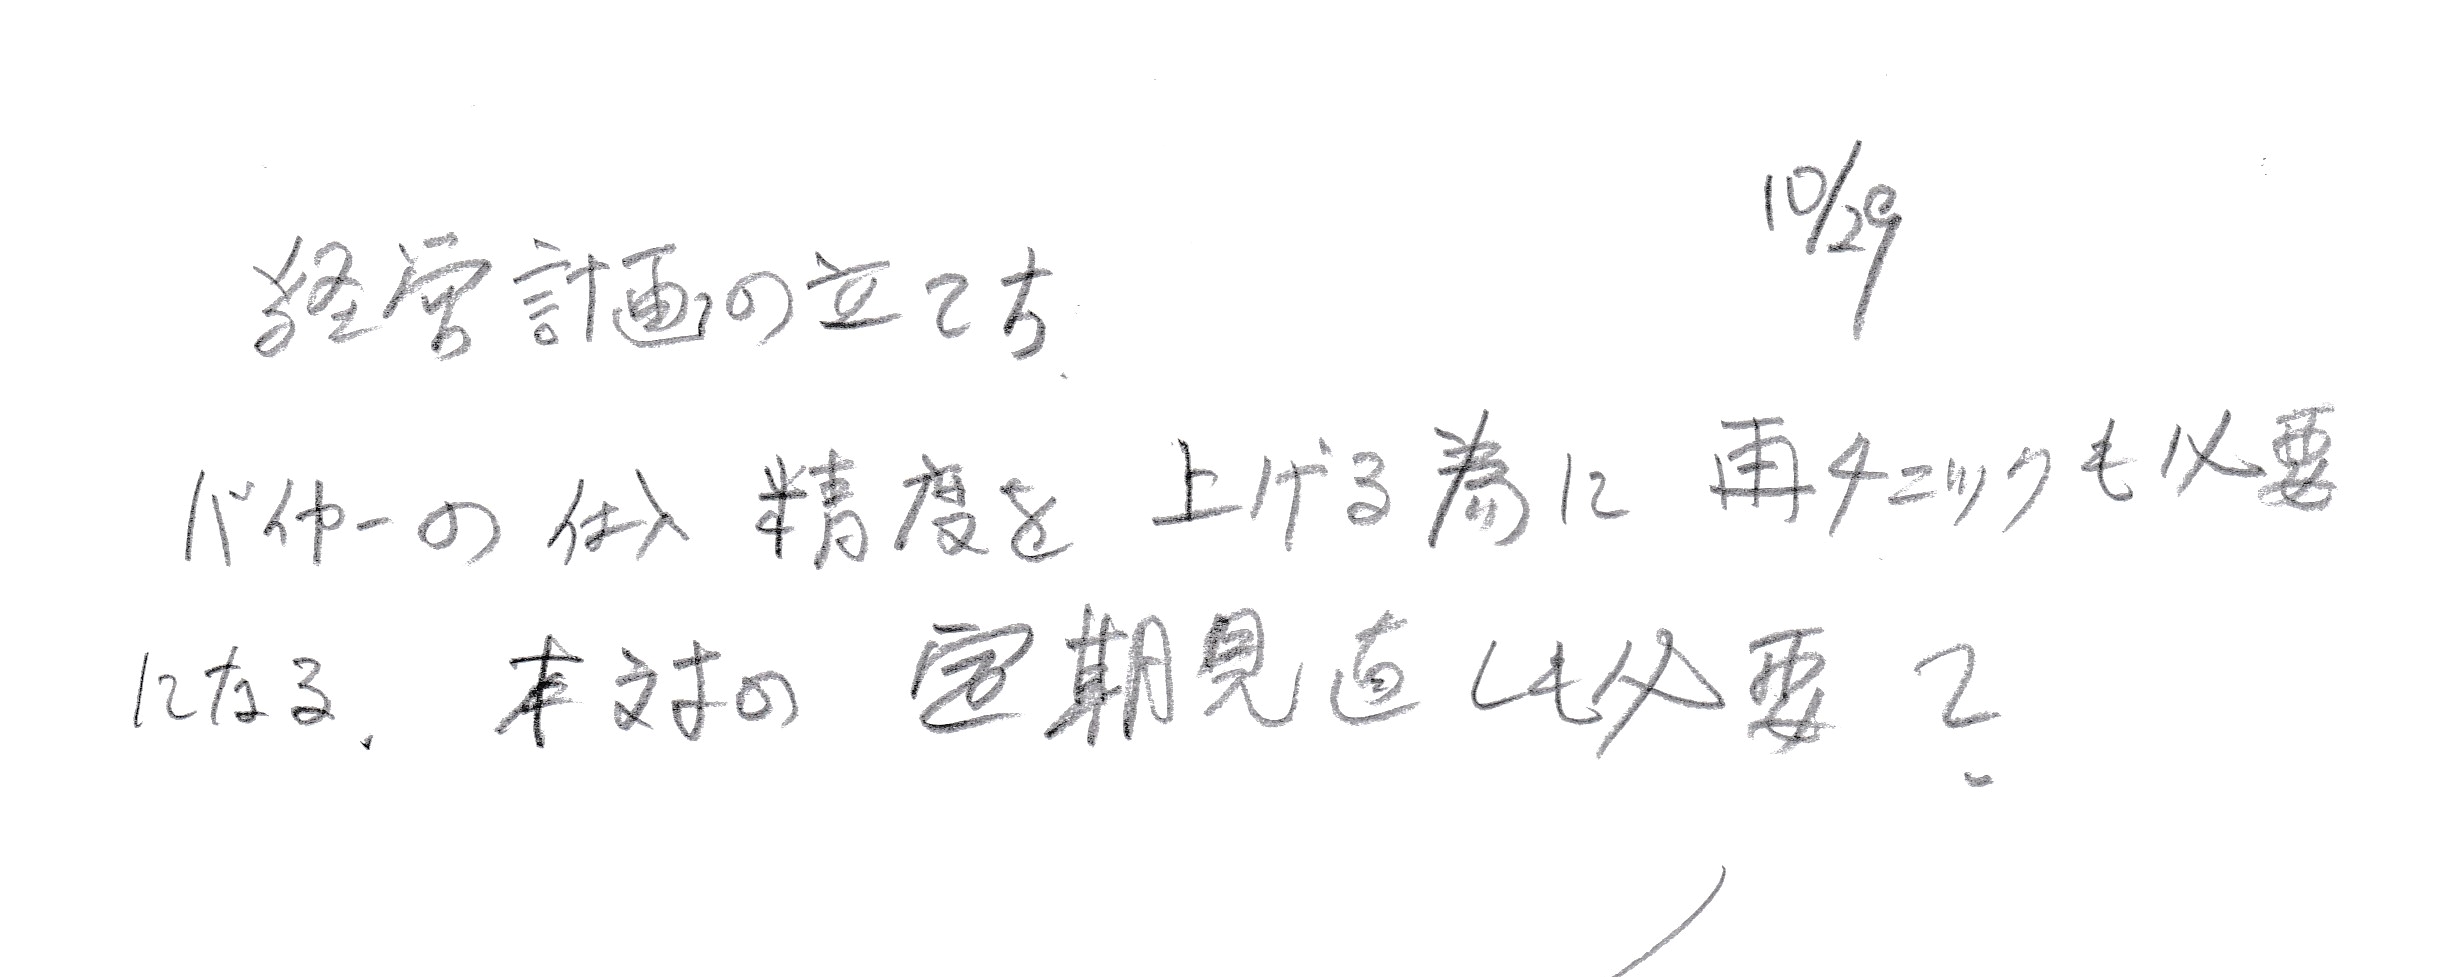 10/29
経営計画の立て方
バイヤーの仕入精度を上げる為に再チェックも必要
になる、本対の定期見直しも必要?